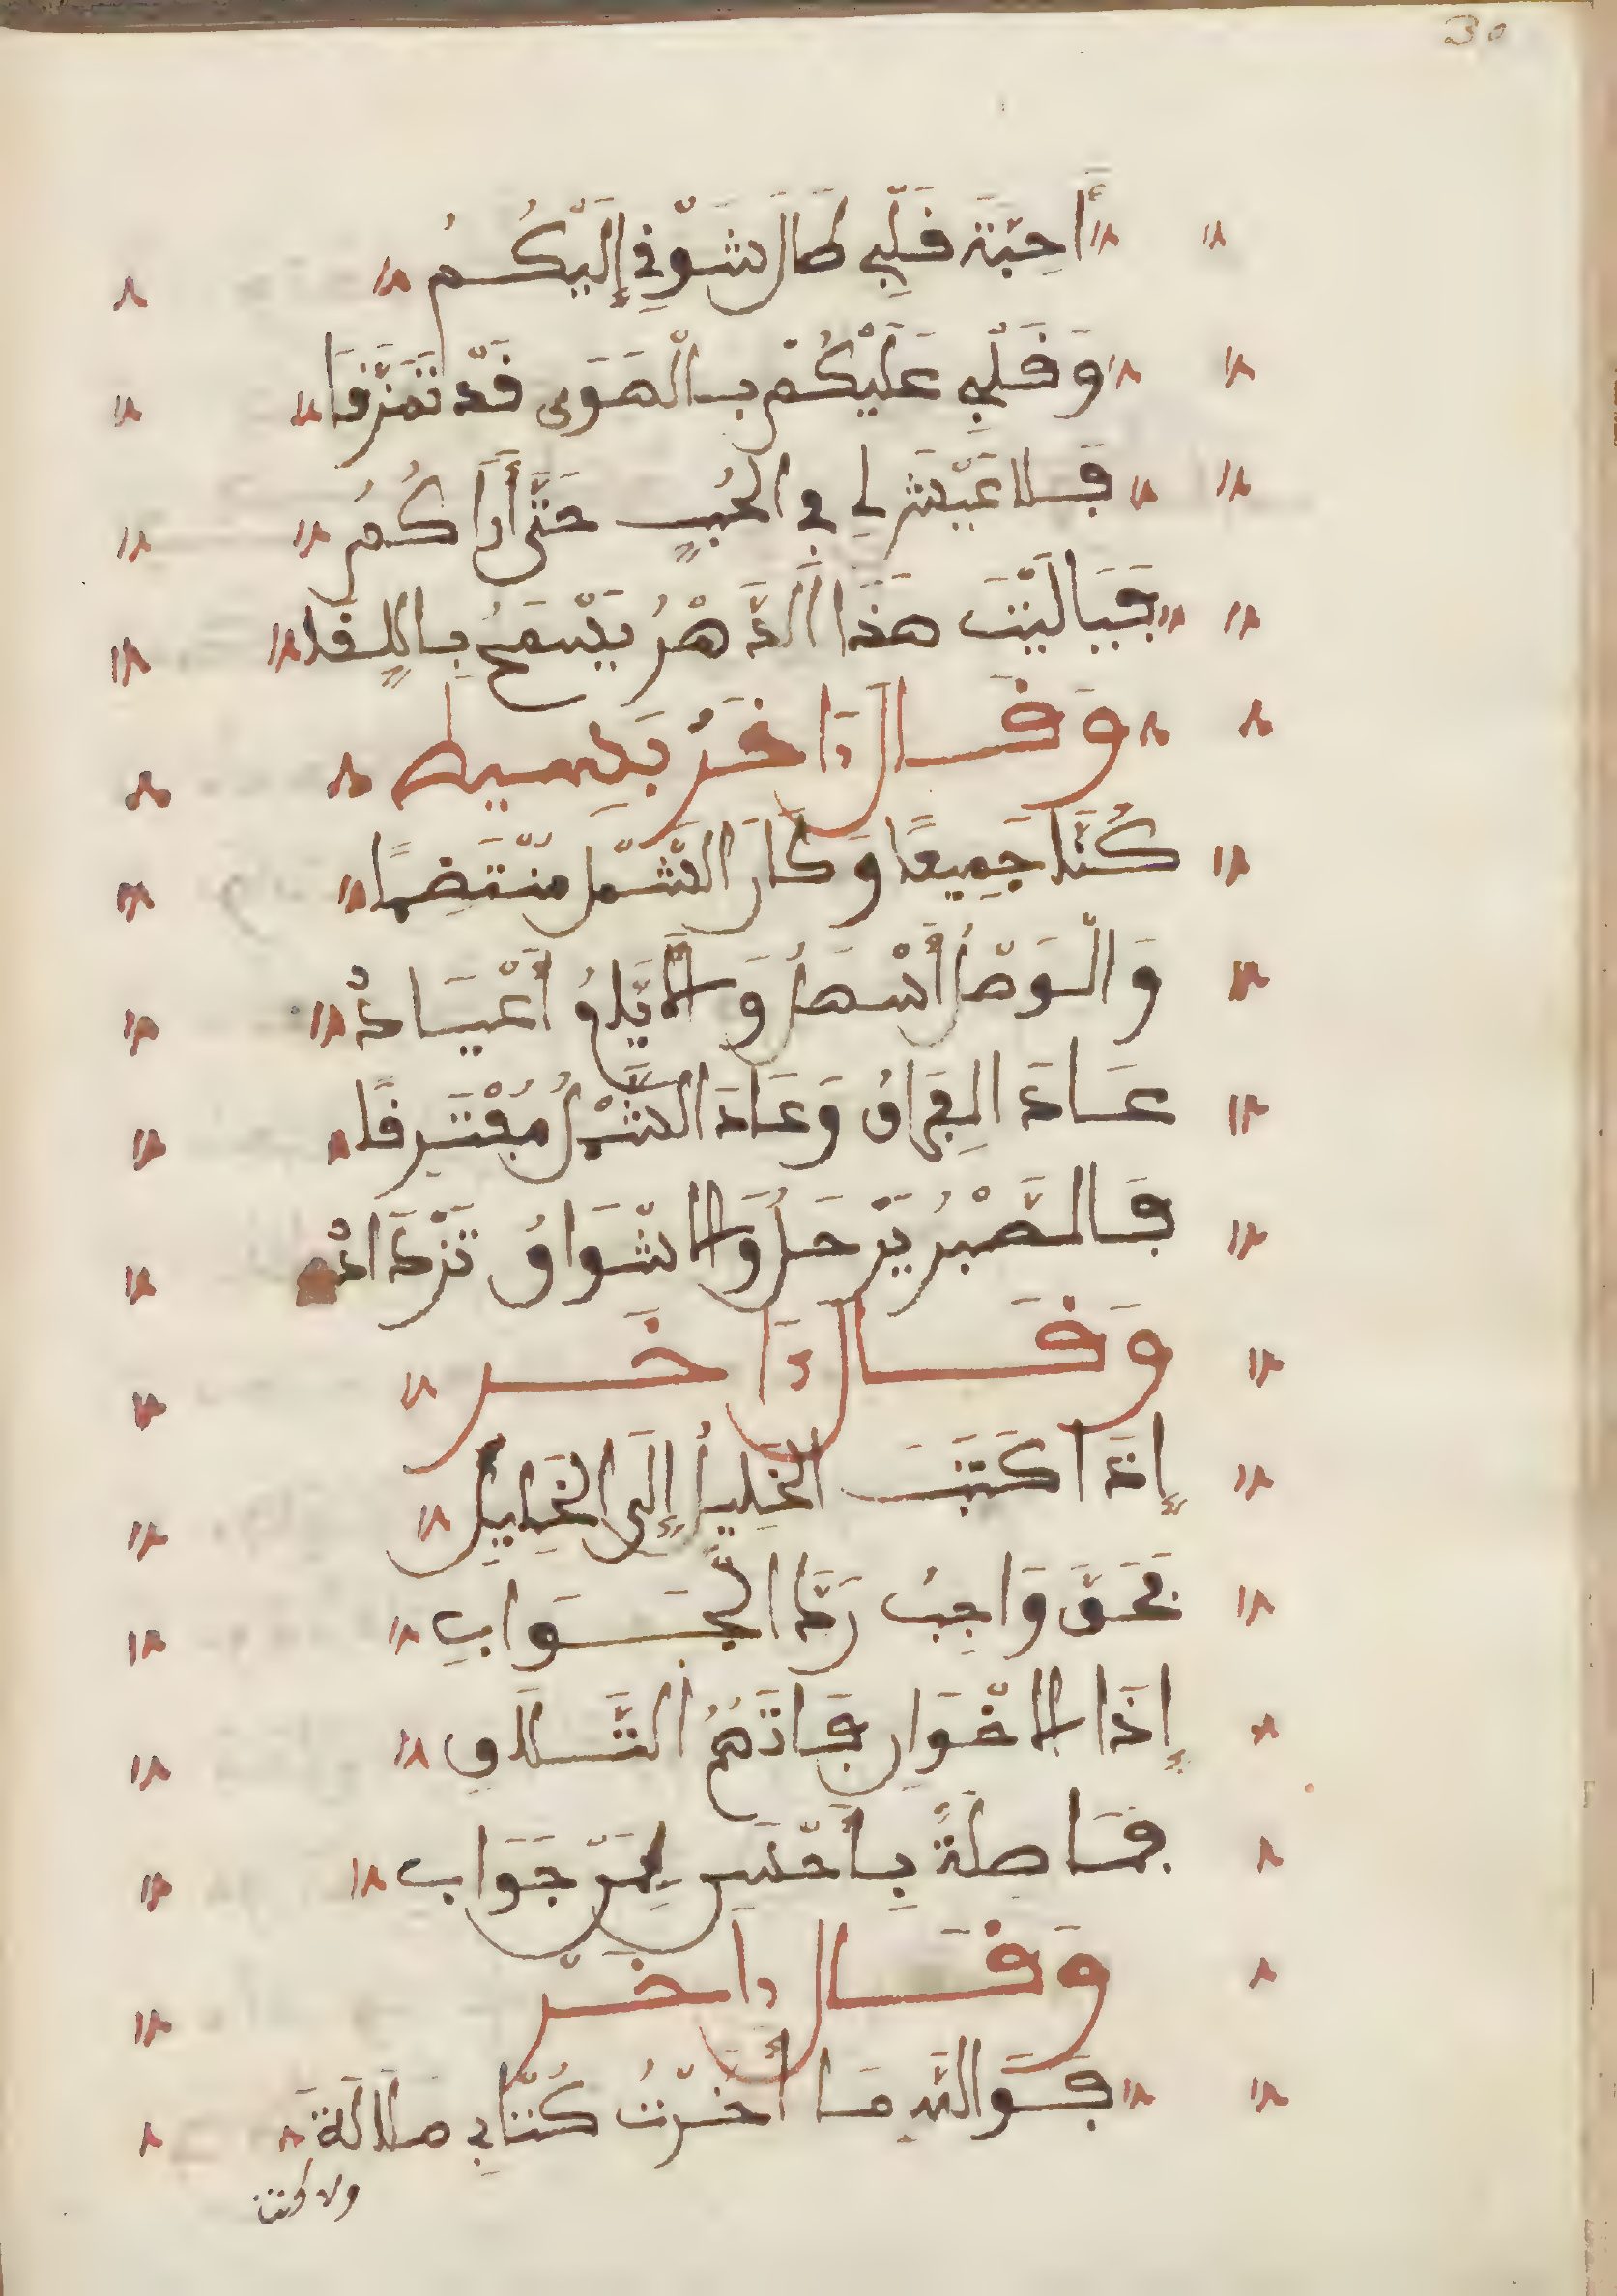 30
أَحِبَّةَ قَلْبِي طَالَ شَوْقِي إِلَيْكُمُ
وَقَلْبِي عَلَيْكُمْ بِالْهَوَى قَدْ تَمَزَّقَا
فَلَا عَيْشَ لِي فِي الْحُبِّ حَتَّى أَرَاكُمُ
فَيَالَيْتَ هَذَا الدَّهْرُ يَسْمَحُ بِاللِّقَا
وَقَالَ ءَاخَرُ بَسِيط
كُنَّا جَمِيعًا وَكَانَ الشَّمْلُ مُنْتَضِمًا
وَالْوَصْلُ أَسْهَلُ وَالْأَيَّامُ أَعْيَادُ
عَادَ الفِرَاقُ وَعَادَ الشَّمْلُ مُفْتَرِقًا
فَالصَّبْرُ يَرْحَلُ وَالاشْوَاقُ تَزْدَادُ
وَقَالَ ءَاخَر
إِذَا كَتَبَ الخَلِيلُ إِلَى الخَلِيلِ
فَحَقٌّ وَاجِبٌ رَدُّ الْجَوَابِ
إِذَا الاخْوَانِ فَاتَهُمُ التَّلَاقِ
فَمَا صِلَةٌ بِأَحْسَنِ مِنْ جَوَابِ
وَقَالَ ءَاخَرْ
فَوَاللَّهِ مَا أَخَّرْتُ كُتْبِي مَلَالَةً
ولا كنت